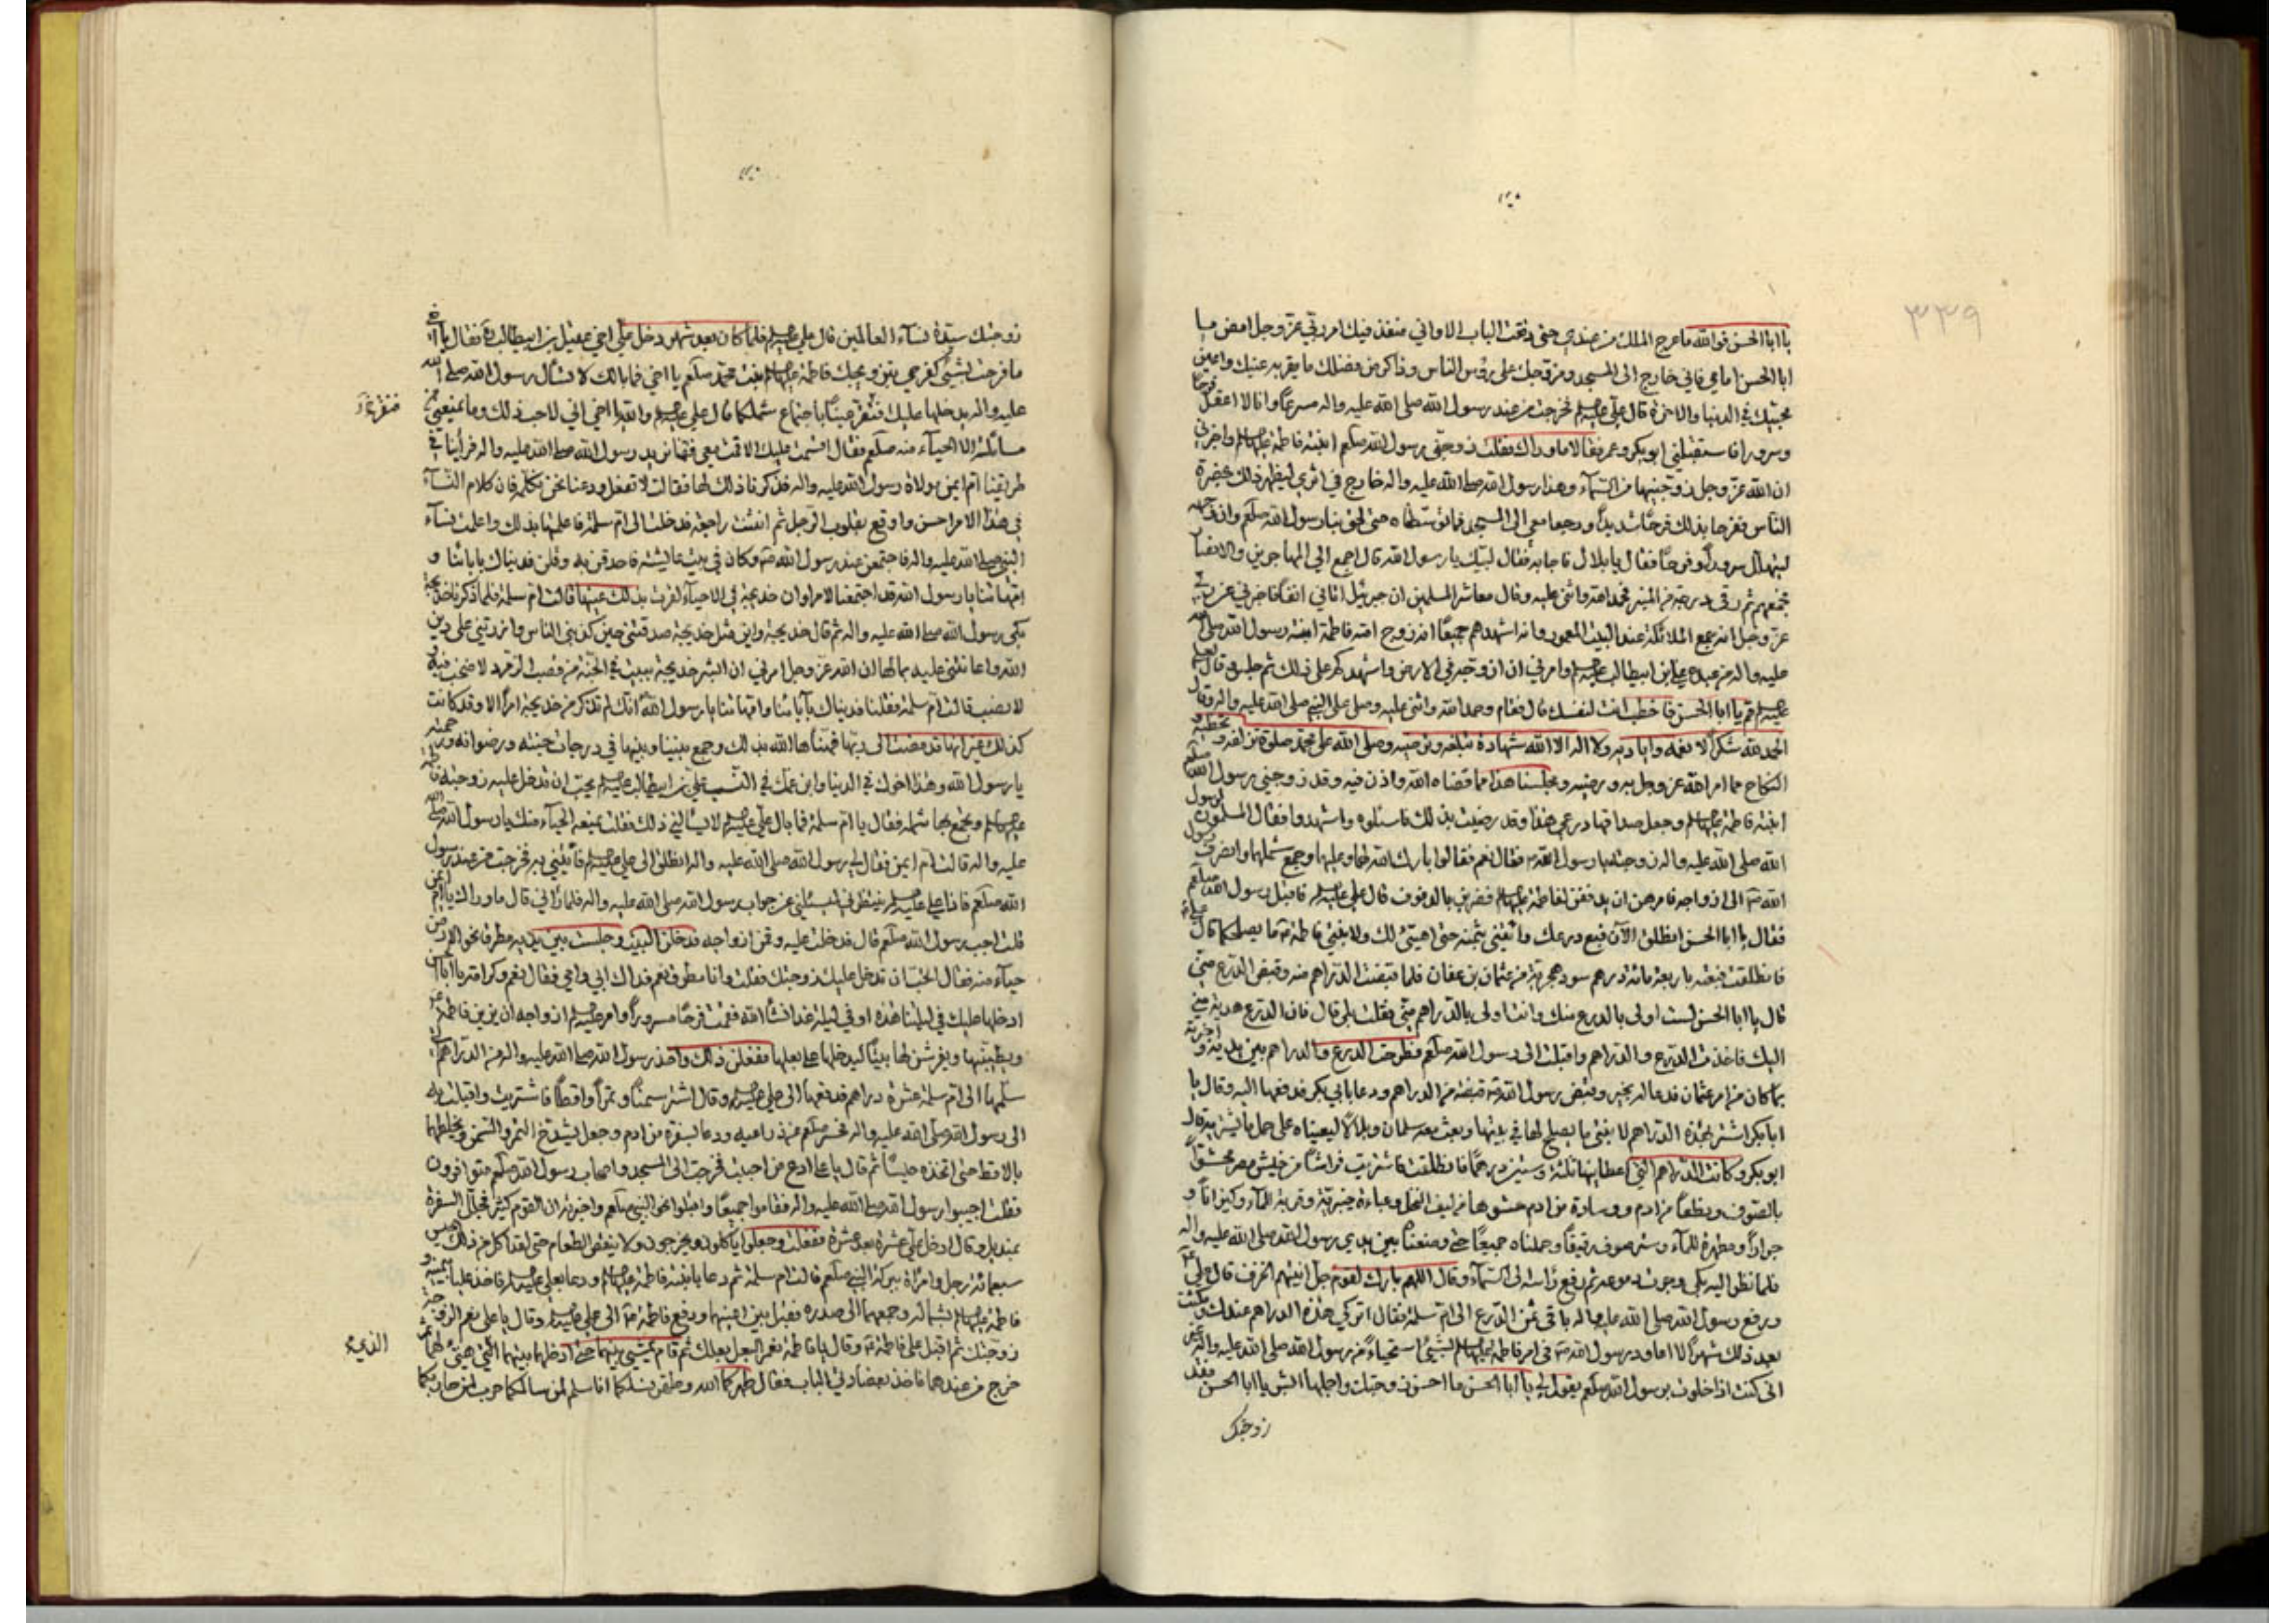 ٣٣٩
يا ابا الحسن فوالله ما عرج الملك من عندي حتى دققت الباب الا واني منفذ فيك امر ربي عز وجل امض يا
ابا الحسن امامي فاني خارج الى المسجد ومزوجك على رؤس الناس وذاكر من فضلك ما يقر به عينك واعين
محبيك في الدنيا والاخرة قال علي عليه السلام فخرجت من عند رسول الله صلى الله عليه واله مسرعا وانا لا اعقل فرحا
وسرورا فاستقبلني ابو بكر وعمر فقالا ما وراك فقلت زوجني رسول الله صلعم ابنته فاطمة عليها السلام واخبرني
ان الله عز وجل زوجنيها من السماء وهذا رسول الله صلى الله عليه واله خارج في اثري ليظهر ذلك بحضرة
الناس ففرحا بذلك فرحا شديدا ورجعا معي الى المسجد فما توسطناه حتى لحق بنا رسول الله صلعم وان وجهه
ليتهلل سرورا وفرحا فقال يا بلال فاجابه فقال لبيك يا رسول الله قال اجمع الي المهاجرين والانصار
فجمعهم ثم رقى درجة من المنبر فحمد الله واثنى عليه وقال معاشر المسلمين ان جبرئيل اتاني انفا فاخبرني عن ربي
عز وجل انه جمع الملائكة عند البيت المعمور وانه اشهدهم جميعا انه زوج امته فاطمة ابنة رسول الله صلى الله
عليه واله من عبده علي بن ابيطالب عليه السلام وامرني ان ازوجه في الارض واشهدكم على ذلك ثم جلس وقال لعلي
عليه السلام قم يا ابا الحسن فاخطب انت لنفسك قال فقام وحمد الله واثنى عليه وصلى على النبي صلى الله عليه واله وقال
الحمد لله شكرا لانعمه واياديه ولا اله الا الله شهادة تبلغه وترضيه وصلى الله على محمد صلوة تزلفه وتحظيه و
النكاح مما امر الله عز وجل به ورضيه ومجلسنا هذا مما قضاه الله واذن فيه وقد زوجني رسول الله صلعم
ابنته فاطمة عليها السلام وجعل صداقها درعي هذا وقد رضيت بذلك فاسئلوه واشهدوا فقال المسلمون لرسول
الله صلى الله عليه واله زوجته يا رسول الله فقال نعم فقالوا بارك الله لهما وعليهما وجمع شملهما وانصرف رسول
الله الى ازواجه فامرهن ان يدففن لفاطمة عليها السلام فضربن بالدفوف قال علي عليه السلام فاقبل رسول الله صلعم
فقال يا ابا الحسن انطلق الآن فبع درعك وائتني بثمنه حتى اهيئ لك ولابنتي فاطمة ما يصلحكما قال علي
فانطلقت فبعته باربعمائة درهم سود هجرية من عثمان بن عفان فلما قبضت الدراهم منه وقبض الدرع مني
قال يا ابا الحسن لست اولى بالدرع منك وانت اولى بالدراهم مني فقلت بلى قال فان الدرع هدية مني
اليك فاخذت الدرع والدراهم واقبلت الى رسول الله صلعم فطرحت الدرع والدراهم بين يديه واخبرته
بما كان من امر عثمان فدعا له بخير وقبض رسول الله قبضة من الدراهم ودعا بابي بكر فدفعها اليه وقال يا
ابا بكر اشتر بهذه الدراهم لابنتي ما يصلح لها في بيتها وبعث معه سلمان وبلالا ليعيناه على حمل ما يشتريه قال
ابو بكر وكانت الدراهم التي اعطانيها ثلثة وستين درهما فانطلقت فاشتريت فراشا من خيش مصر محشوا
بالصوف ونطعا من ادم ووسادة من ادم حشوها من ليف النخل وعباءة خيبرية وقربة للماء وكيزانا و
جرارا ومطهرة للماء وستر صوف رقيقا وحملناه جميعا حتى وضعناه بين يدي رسول الله صلى الله عليه واله
فلما نظر اليه بكى وجرت دموعه ثم رفع رأسه الى السماء وقال اللهم بارك لقوم جل انيتهم الخزف قال علي
ورفع رسول الله صلى الله عليه واله باقي ثمن الدرع الى ام سلمة فقال اتركي هذه الدراهم عندك ومكثت
بعد ذلك شهرا لا اعاود رسول الله في امر فاطمة عليها السلام بشيئ استحياء من رسول الله صلى الله عليه واله غير
اني كنت اذا خلوت برسول الله صلعم يقول لي يا ابا الحسن ما احسن زوجتك واجملها ابشر يا ابا الحسن فقد
زوجتك
زوجتك سيدة نساء العالمين قال علي عليه السلام فلما كان بعد شهر دخل علي اخي عقيل بن ابيطالب فقال يا اخي
ما فرحت بشيئ كفرحي بتزويجك فاطمة عليها السلام بنت محمد صلعم يا اخي فما بالك لا تسأل رسول الله صلى الله
عليه واله يدخلها عليك فنقر عينا باجتماع شملكما قال علي عليه السلام والله يا اخي اني لاحب ذلك وما يمنعني من
مسألته الا الحياء منه صلعم فقال اقسمت عليك الا قمت معي فقمنا نريد رسول الله صلى الله عليه واله فرأينا في
طريقنا ام ايمن مولاة رسول الله عليه واله فذكرنا ذلك لها فقالت لا تفعل ودعنا نحن نكلمه فان كلام النساء
في هذا الامر احسن واوقع بقلوب الرجال ثم انثنت راجعة فدخلت الى ام سلمة فاعلمتها بذلك واعلمت نساء
النبي صلى الله عليه واله فاجتمعن عند رسول الله وكان في بيت عايشة فاحدقن به وقلن فديناك بابائنا و
امهاتنا يا رسول الله قد اجتمعنا لامر لو ان خديجة في الاحياء لقرت بذلك عينها قالت ام سلمة فلما ذكرنا خديجة
بكى رسول الله صلى الله عليه واله ثم قال خديجة واين مثل خديجة صدقتني حين كذبني الناس وازرتني على دين
الله واعانتني عليه بمالها ان الله عز وجل امرني ان ابشر خديجة ببيت في الجنة من قصب الزمرد لا صخب فيه و
لا نصب قالت ام سلمة فقلنا فديناك بآبائنا وامهاتنا يا رسول الله انك لم تذكر من خديجة امرا الا وقد كانت
كذلك غير انها قد مضت الى ربها فهنأها الله بذلك وجمع بيننا وبينها في درجات جنته ورضوانه ورحمته
يا رسول الله وهذا اخوك في الدنيا وابن عمك في النسب علي بن ابيطالب عليه السلام يحب ان تدخل عليه زوجته فاطمة
عليها السلام وتجمع بها شمله فقال يا ام سلمة فما بال علي عليه السلام لا يسألني ذلك فقلت يمنعه الحياء منك يا رسول الله صلى الله
عليه واله قالت ام ايمن فقال لي رسول الله صلى الله عليه واله انطلقي الى علي عليه السلام فأتيني به فخرجت من عند رسول
الله صلعم فاذا علي عليه السلام ينتظرني ليسئلني عن جواب رسول الله صلى الله عليه واله فلما رآني قال ما وراك يا ام ايمن
قلت اجب رسول الله صلعم قال فدخلت عليه وقمن ازواجه فدخلن البيت وجلست بين يديه مطرقا نحو الارض
حياء منه فقال اتحب ان تدخل عليك زوجتك فقلت وانا مطرق نعم فداك ابي وامي فقال نعم وكرامة يا ابا الحسن
ادخلها عليك في ليلتنا هذه او في ليلة غد انشاء الله فقمت فرحا مسرورا وامر عليه السلام ازواجه ان يزين فاطمة
ويطيبنها ويفرشن لها بيتا ليدخلها على بعلها ففعلن ذلك واخذ رسول الله صلى الله عليه واله من الدراهم التي
سلمها الى ام سلمة عشرة دراهم فدفعها الى علي عليه السلام وقال اشتر سمنا وتمرا واقطا فاشتريت واقبلت به
الى رسول الله صلى الله عليه واله فحسر صلعم عن ذراعيه ودعا بسفرة من ادم وجعل يشدخ التمر والسمن ويخلطهما
بالاقط حتى اتخذه حيسا ثم قال يا علي ادع من احببت فخرجت الى المسجد واصحاب رسول الله صلعم متوافرون
فقلت اجيبوا رسول الله صلى الله عليه واله فقاموا جميعا واقبلوا نحو النبي صلعم واخبرته ان القوم كثير فجلل السفرة
بمنديل وقال ادخل علي عشرة بعد عشرة ففعلت وجعلوا يأكلون ويخرجون ولا ينقص الطعام حتى لقد اكل من ذلك الحيس
سبعمائة رجل وامرأة ببركة النبي صلعم قالت ام سلمة ثم دعا بابنته فاطمة عليها السلام ودعا بعلي عليه السلام فاخذ عليا بيمينه و
فاطمة عليها السلام بشماله وجمعهما الى صدره فقبل بين اعينهما ودفع فاطمة الى علي عليه السلام وقال يا علي نعم الزوجة
زوجتك ثم اقبل على فاطمة وقال يا فاطمة نعم البعل بعلك ثم قام يمشي بينهما حتى ادخلهما بيتهما الذي هيئ لهما ثم
خرج من عندهما فاخذ بعضادتي الباب فقال طهركما الله وطهر نسلكما انا سلم لمن سالمكما حرب لمن حاربكما
الذي